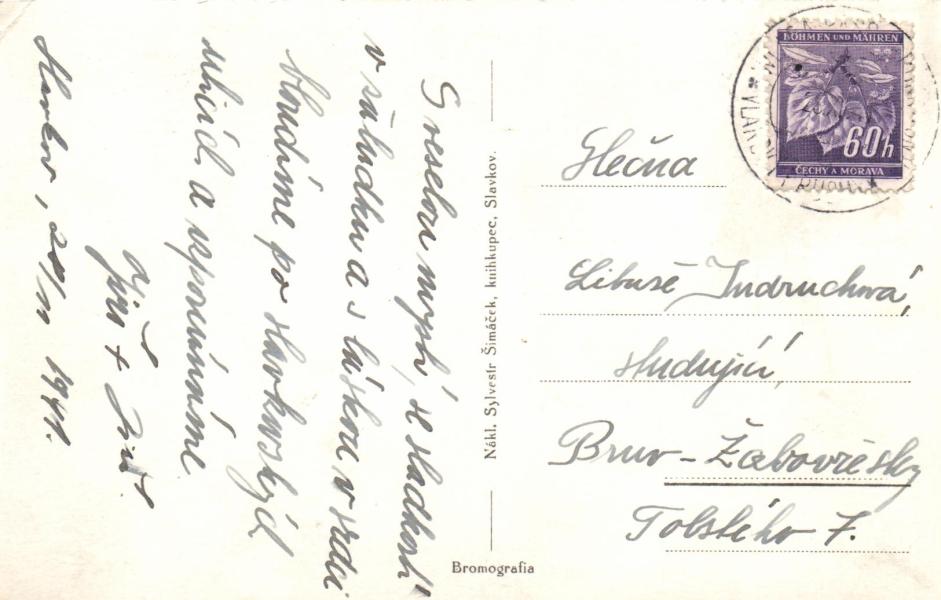 S veselou myslí, se sladkostí
v žaludku a s láskou v srdci
bloudíme po slavkovských
ulicích a vzpomínáme
Jiří + Jiří.
Slavkov, 1941.
Nákl. Sylvestr Šimáček, knihkupec, Slavkov.
Bromografia
BÖHMEN UND MÄHREN
60h
ČECHY A MORAVA
Slečna
Libuše Jndruchová,
studující,
Brno - Žabovřesky
Tolstého 7.